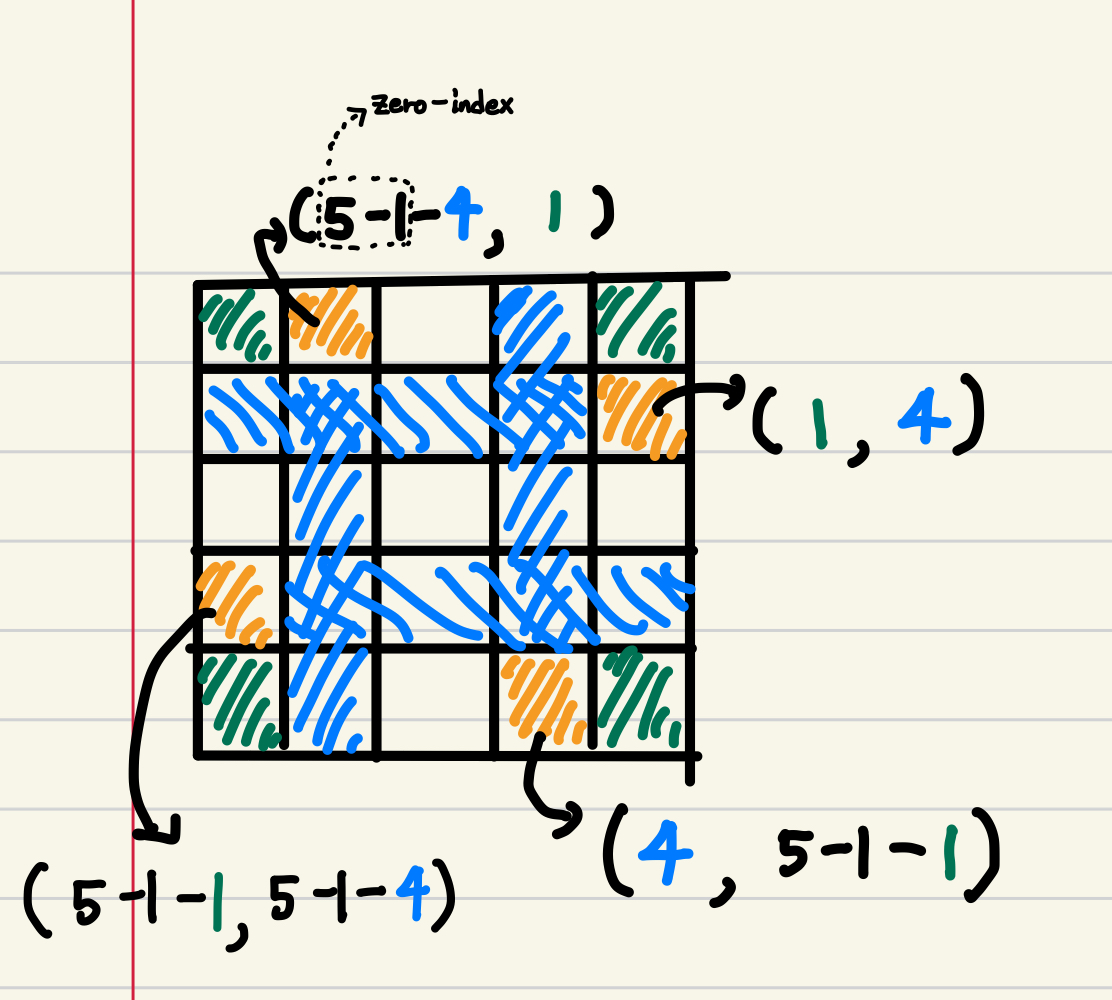 zero-index
(5-1-4, 1)
(1, 4)
(4, 5-1-1)
(5-1-1, 5-1-4)